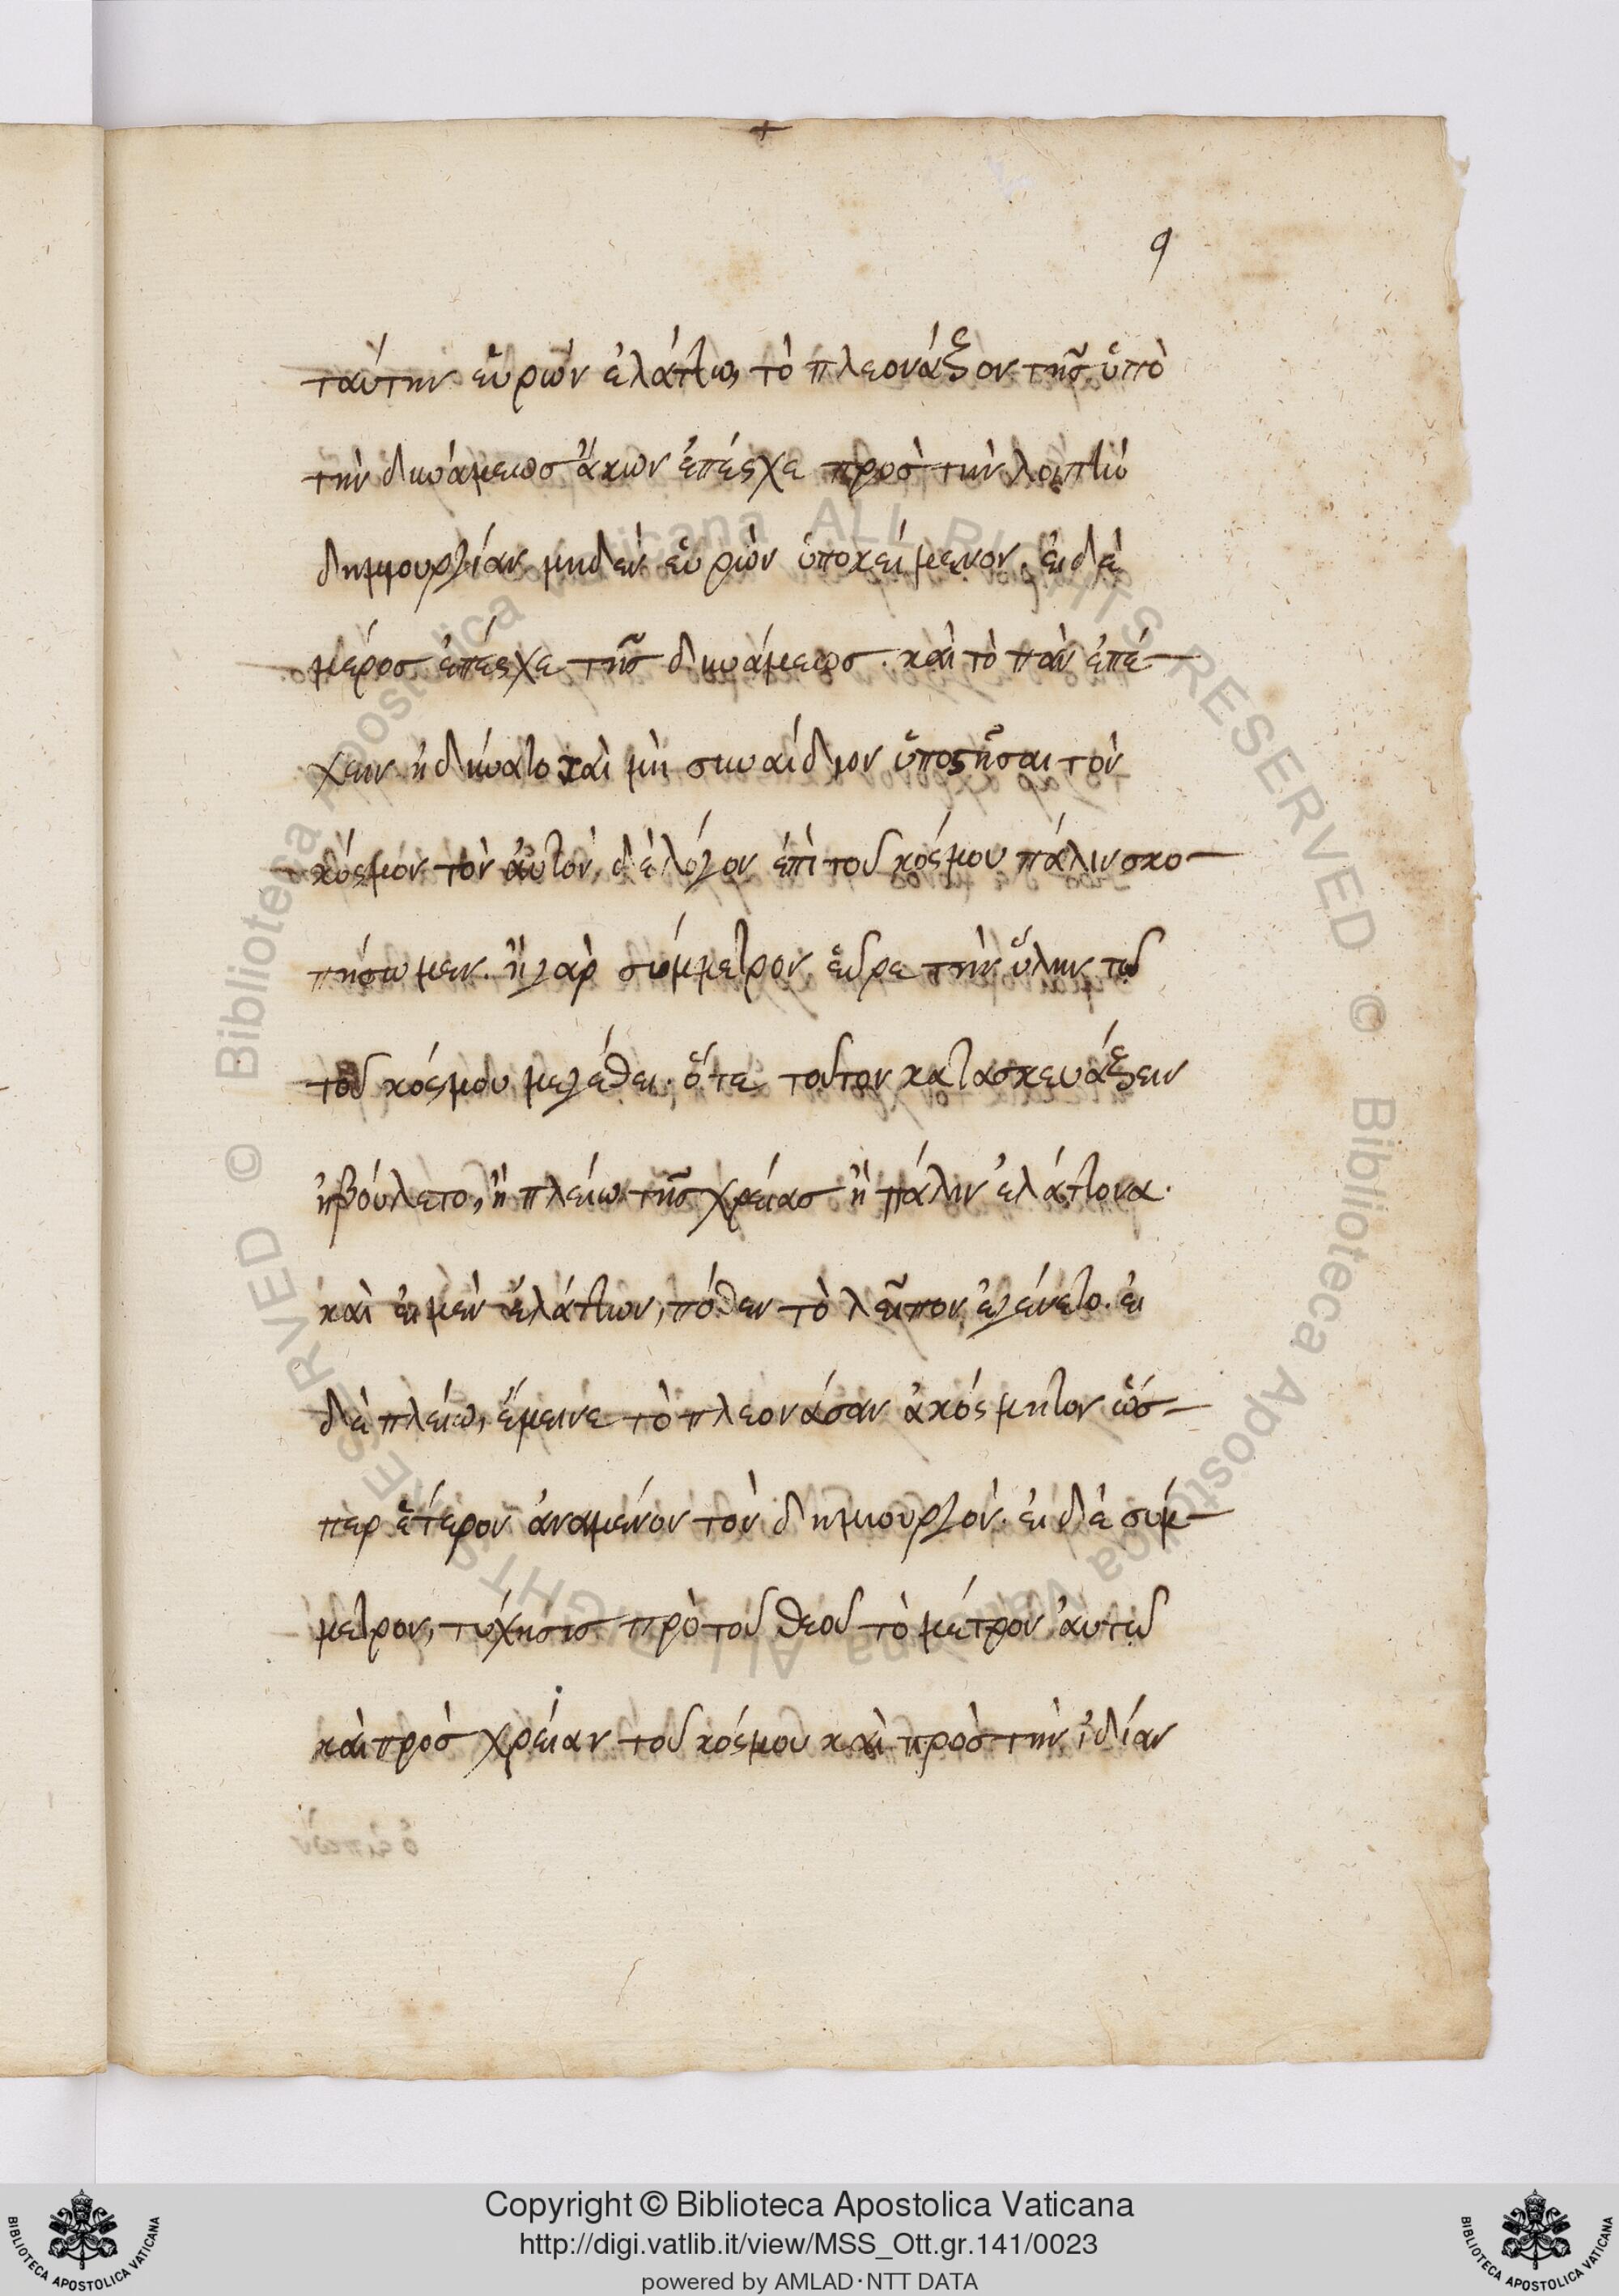 9
ταύτην εὑρὼν ἐλάττω, τὸ πλεονάζον τῆς ὑπὸ
τὴν δυνάμεως ἄκων ἐπέσχε πρὸς τὴν λοιπὴν
δημιουργίαν μηδὲν εὑρὼν ὑποκείμενον. εἰ δὲ
μέρος ἐπέσχε τῆς δυνάμεως. καὶ τὸ πᾶν ἐπέ-
χειν ἠδύνατο καὶ μὴ συναίδιον ὑποστῆσαι τὸν
κόσμον τὸν αὐτὸν δὲ λόγον ἐπὶ τοῦ κόσμου πάλιν σκο-
πήσωμεν. ἢ γὰρ σύμμετρον εὗρε τὴν ὕλην τῶ
τοῦ κόσμου μεγέθει. ὅτε τοῦτον κατασκευάζειν
ἠβούλετο, ἢ πλείω τῆς χρείας ἢ πάλιν ἐλάττονα.
καὶ εἰ μὲν ἐλάττων, πόθεν τὸ λεῖπον ἐγένετο. εἰ
δὲ πλείω, ἔμεινε τὸ πλεονάσαν ἀκόσμητον ὥσ-
περ ἕτερον ἀναμένον τὸν δημιουργόν. εἰ δὲ σύμ-
μετρον, τίς πρὸ τοῦ θεοῦ τὸ μέτρον αὐτῶ
καὶ πρὸς χρείαν τοῦ κόσμου καὶ πρὸς τὴν ἰδίαν
Copyright © Biblioteca Apostolica Vaticana
http://digi.vatlib.it/view/MSS_Ott.gr.141/0023
powered by AMLAD·NTT DATA
BIBLIOTECA APOSTOLICA VATICANA
BIBLIOTECA APOSTOLICA VATICANA
© Biblioteca Apostolica Vaticana ALL RIGHTS RESERVED © Biblioteca Apostolica Vaticana ALL RIGHTS RESERVED